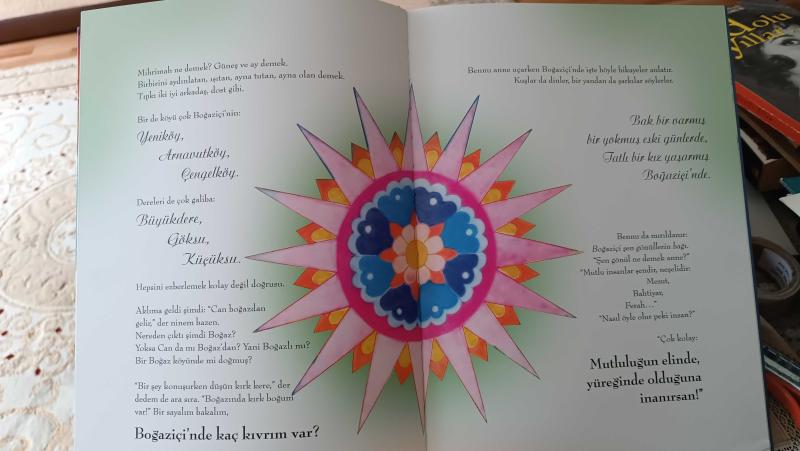 Mihrimah ne demek? Güneş ve ay demek.
Birbirini aydınlatan, ısıtan, ayna tutan, ayna olan demek.
Tıpkı iki iyi arkadaş, dost gibi.
Bir de köyü çok Boğaziçi'nin:
Yeniköy,
Arnavutköy,
Çengelköy.
Dereleri de çok galiba:
Büyükdere,
Göksu,
Küçüksu.
Hepsini ezberlemek kolay değil doğrusu.
Aklıma geldi şimdi: "Can boğazdan
geliz," der ninem bazen.
Nereden çıktı şimdi Boğaz?
Yoksa Can da mı Boğaz'dan? Yani Boğazlı mı?
Bir Boğaz köyünde mi doğmuş?
"Bir şey konuşurken düşün kırk kere," der
dedem de ara sıra. "Boğazında kırk boğum
var!" Bir sayalım bakalım,
Boğaziçi'nde kaç kıvrım var?
Bennu anne uçarken Boğaziçi'nde işte böyle hikayeler anlatır.
Kuşlar da dinler, bir yandan da şarkılar söylerler.
Bak bir varmış
bir yokmuş eski günlerde,
Tatlı bir kız yaşarmış
Boğaziçi'nde.
Bennu da mırıldanır:
Boğaziçi şen gönüllerin bağı.
"Şen gönül ne demek anne?"
"Mutlu insanlar şendir, neşelidir:
Mesut,
Bahtiyar,
Ferah..."
"Nasıl öyle olur peki insan?"
"Çok kolay:
Mutluluğun elinde,
yüreğinde olduğuna
inanırsan!"